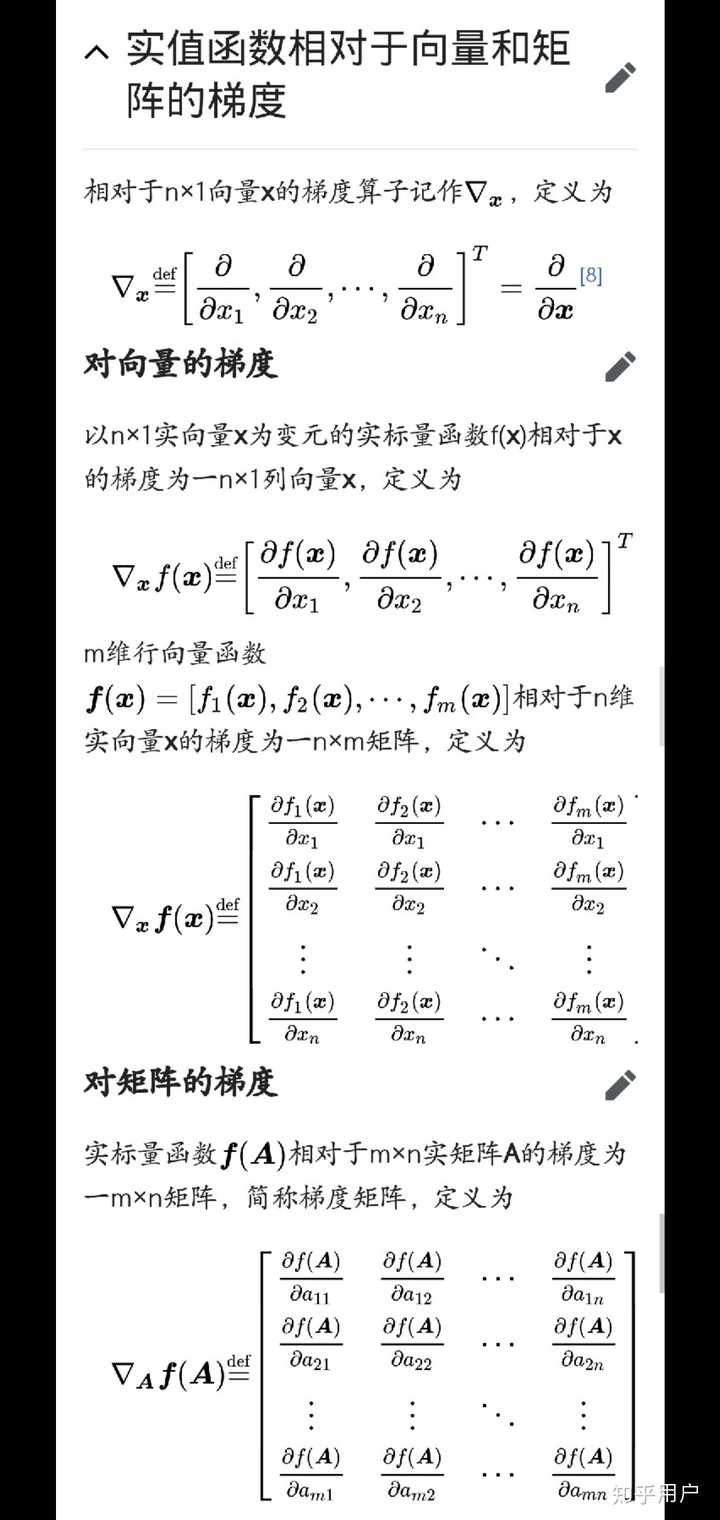 实值函数相对于向量和矩
阵的梯度
相对于n×1向量x的梯度算子记作∇ₓ，定义为
∇ₓ ≝ [∂/∂x₁, ∂/∂x₂, ⋯, ∂/∂xₙ]ᵀ = ∂/∂x [8]
对向量的梯度
以n×1实向量x为变元的实标量函数f(x)相对于x
的梯度为一n×1列向量x，定义为
∇ₓ f(x) ≝ [∂f(x)/∂x₁, ∂f(x)/∂x₂, ⋯, ∂f(x)/∂xₙ]ᵀ
m维行向量函数
f(x) = [f₁(x), f₂(x), ⋯, fₘ(x)]相对于n维
实向量x的梯度为一n×m矩阵，定义为
∂f₁(x)/∂x₁ ∂f₂(x)/∂x₁ ⋯ ∂fₘ(x)/∂x₁
∂f₁(x)/∂x₂ ∂f₂(x)/∂x₂ ⋯ ∂fₘ(x)/∂x₂
∇ₓ f(x) ≝
⋮ ⋮ ⋱ ⋮
∂f₁(x)/∂xₙ ∂f₂(x)/∂xₙ ⋯ ∂fₘ(x)/∂xₙ
对矩阵的梯度
实标量函数f(A)相对于m×n实矩阵A的梯度为
一m×n矩阵，简称梯度矩阵，定义为
∂f(A)/∂a₁₁ ∂f(A)/∂a₁₂ ⋯ ∂f(A)/∂a₁ₙ
∂f(A)/∂a₂₁ ∂f(A)/∂a₂₂ ⋯ ∂f(A)/∂a₂ₙ
∇_A f(A) ≝
⋮ ⋮ ⋱ ⋮
∂f(A)/∂aₘ₁ ∂f(A)/∂aₘ₂ ⋯ ∂f(A)/∂aₘₙ
知乎用户